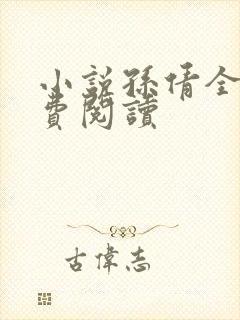 小說孫倩全
費閱讀
古偉志